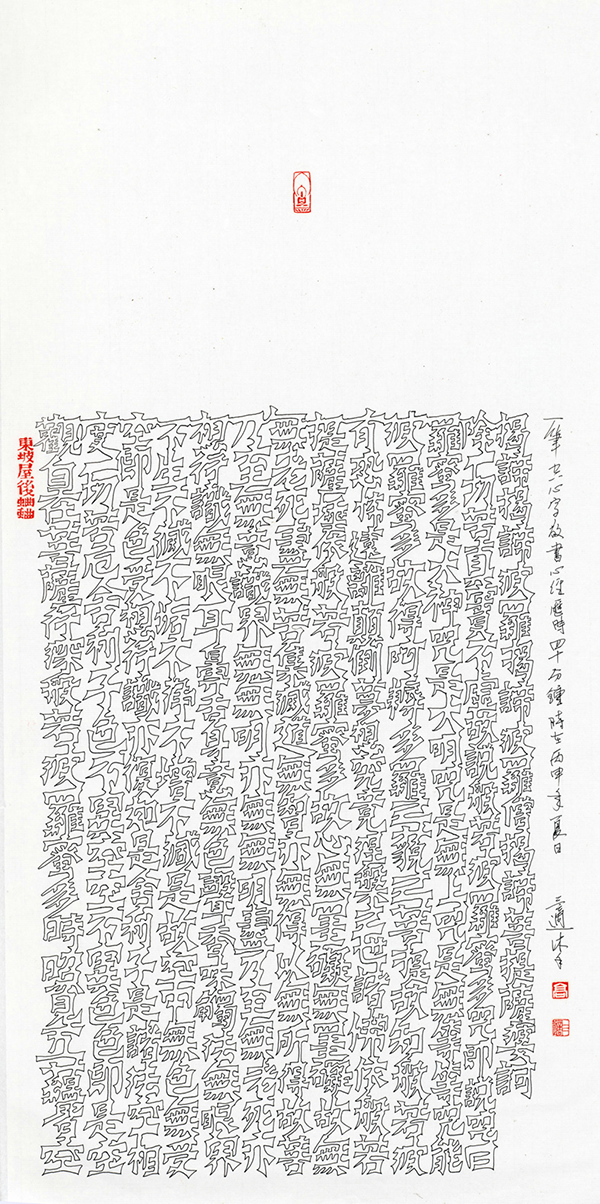 東坡屋後蛐蛐
觀自在菩薩行深般若波羅蜜多時照見五蘊皆空
度一切苦厄舍利子色不異空空不異色色即是空
空即是色受想行識亦復如是舍利子是諸法空相
不生不滅不垢不淨不增不減是故空中無色無受
想行識無眼耳鼻舌身意無色聲香味觸法無眼界
乃至無意識界無無明亦無無明盡乃至無老死亦
無老死盡無苦集滅道無智亦無得以無所得故菩
提薩埵依般若波羅蜜多故心無罣礙無罣礙故無
有恐怖遠離顛倒夢想究竟涅槃三世諸佛依般若
波羅蜜多故得阿耨多羅三藐三菩提故知般若波
羅蜜多是大神咒是大明咒是無上咒是無等等咒能
除一切苦真實不虛故說般若波羅蜜多咒即說咒曰
揭諦揭諦波羅揭諦波羅僧揭諦菩提薩婆訶
一筆心字故書心經歷時四十分鐘時在丙申年夏日